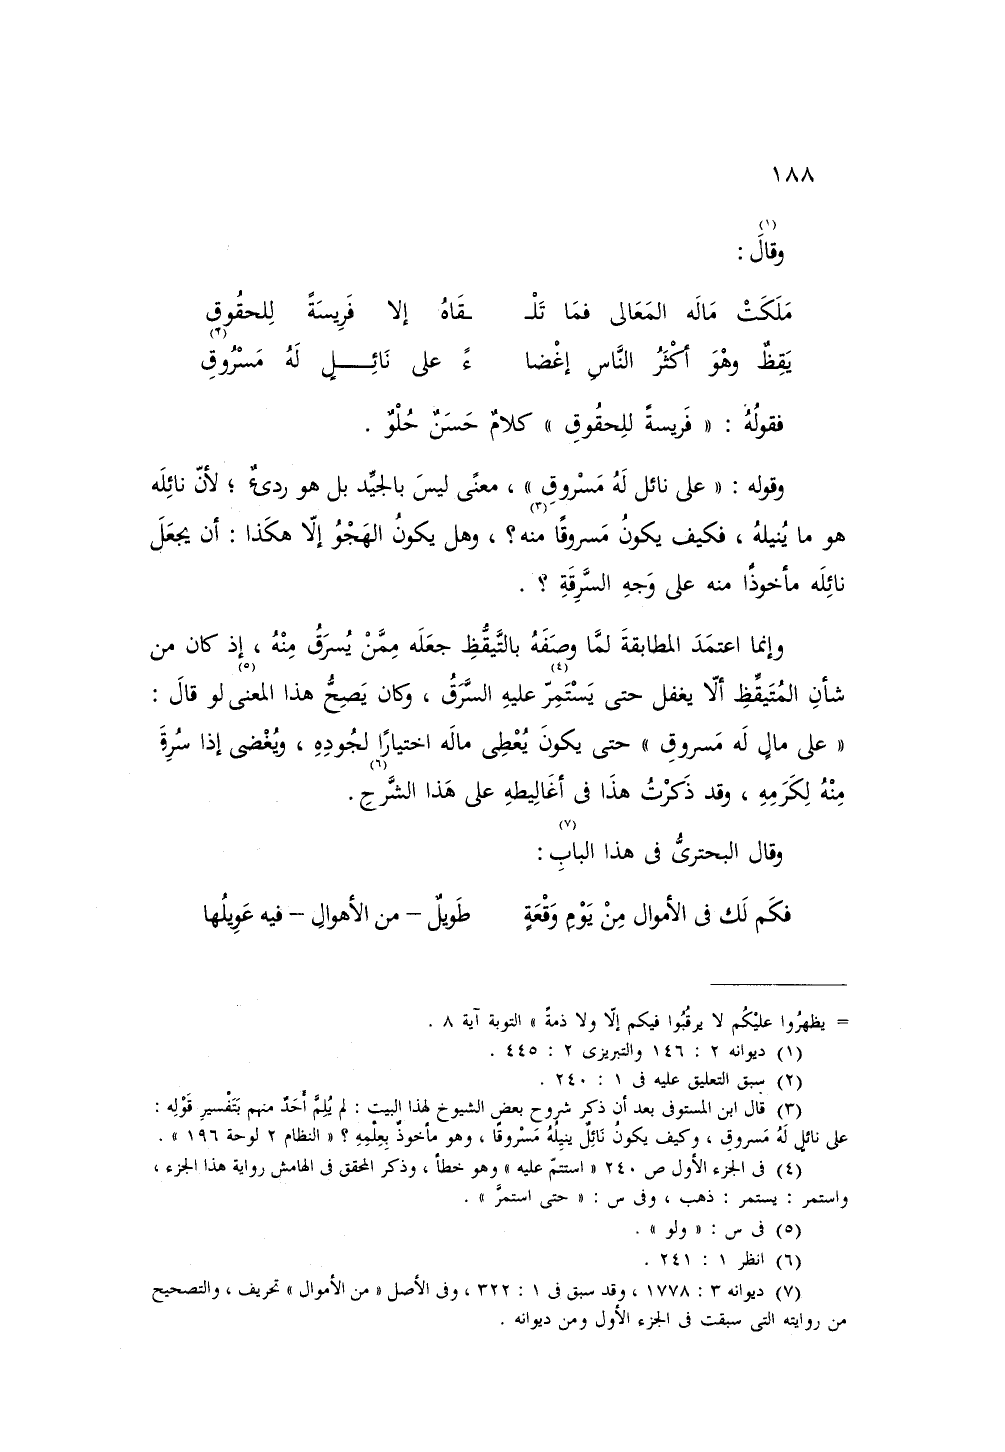 ١٨٨
(١)
وقالَ :
مَلَكَتْ مَالَه المَعَالى فمَا تَلْـ ـقَاهُ إلا فَرِيسَةً لِلحقُوقِ
(٢)
يَقِظٌ وهْوَ أكْثَرُ النَّاسِ إغْضا ءً على نَائِـــــلٍ لَهُ مَسْرُوقِ
فقولُهُ : « فَريسةً للِحقُوقِ » كلامٌ حَسَنٌ حُلْوٌ .
وقوله : « على نائل لَهُ مَسْروقِ » ، معنًى ليسَ بالجيِّد بل هو ردىءٌ ؛ لأنّ نائِلَه
(٣)
هو ما يُنيلهُ ، فكيف يكونُ مَسروقًا منه ؟ ، وهل يكونُ الهَجْوُ إلّا هكَذا : أن يجعَلَ
نائِلَه مأخوذًا منه على وَجهِ السَّرِقَةِ ؟ .
وإنما اعتمَدَ المطابقةَ لمَّا وصفَهُ بالتَّيقُّظِ جعَلَه مِمَّنْ يُسرَقُ مِنْهُ ، إذ كان من
(٤) (٥)
شأنِ المُتَيقِّظِ ألّا يغفل حتى يَسْتَمِرّ عليهِ السَّرَقُ ، وكان يَصِحُّ هذا المعنى لو قالَ :
« على مالٍ لَه مَسروقِ » حتى يكونَ يُعْطِى مالَه اختيارًا لجُودِهِ ، ويُغْضى إذا سُرِقَ
(٦)
مِنْهُ لِكَرَمِهِ ، وقد ذَكَرْتُ هذَا فى أغَالِيطهِ على هَذا الشَّرحِ .
(٧)
وقال البحترىُّ فى هذا البابِ :
فكَم لَك فى الأموال مِنْ يَوْمِ وَقْعَةٍ طَويلٌ – من الأهوالِ – فيه عَوِيلُها
= يظهرُوا عليْكُم لا يرقُبُوا فيكم إلّا ولا ذمةً » التوبة آية ٨ .
(١) ديوانه ٢ : ١٤٦ والتبريزى ٢ : ٤٤٥ .
(٢) سبق التعليق عليه فى ١ : ٢٤٠ .
(٣) قال ابن المستوفى بعد أن ذكر شروح بعض الشيوخ لهذا البيت : لم يُلِمَّ أَحَدٌ منهم بتَفْسيرِ قَوْلِه :
على نائلٍ لَهُ مَسروقِ ، وكيف يكونُ نَائِلٌ ينيلُهُ مَسْروقًا ، وهو مأخوذٌ بِعِلْمِهِ ؟ « النظام ٢ لوحة ١٩٦ » .
(٤) فى الجزء الأول ص ٢٤٠ « استتمّ عليه » وهو خطأ ، وذكر المحقق فى الهامش رواية هذا الجزء ،
واستمر : يستمر : ذهب ، وفى س : « حتى استمرَّ » .
(٥) فى س : « ولو » .
(٦) انظر ١ : ٢٤١ .
(٧) ديوانه ٣ : ١٧٧٨ ، وقد سبق فى ١ : ٣٢٢ ، وفى الأصل « من الأموال » تحريف ، والتصحيح
من روايته التى سبقت فى الجزء الأول ومن ديوانه .